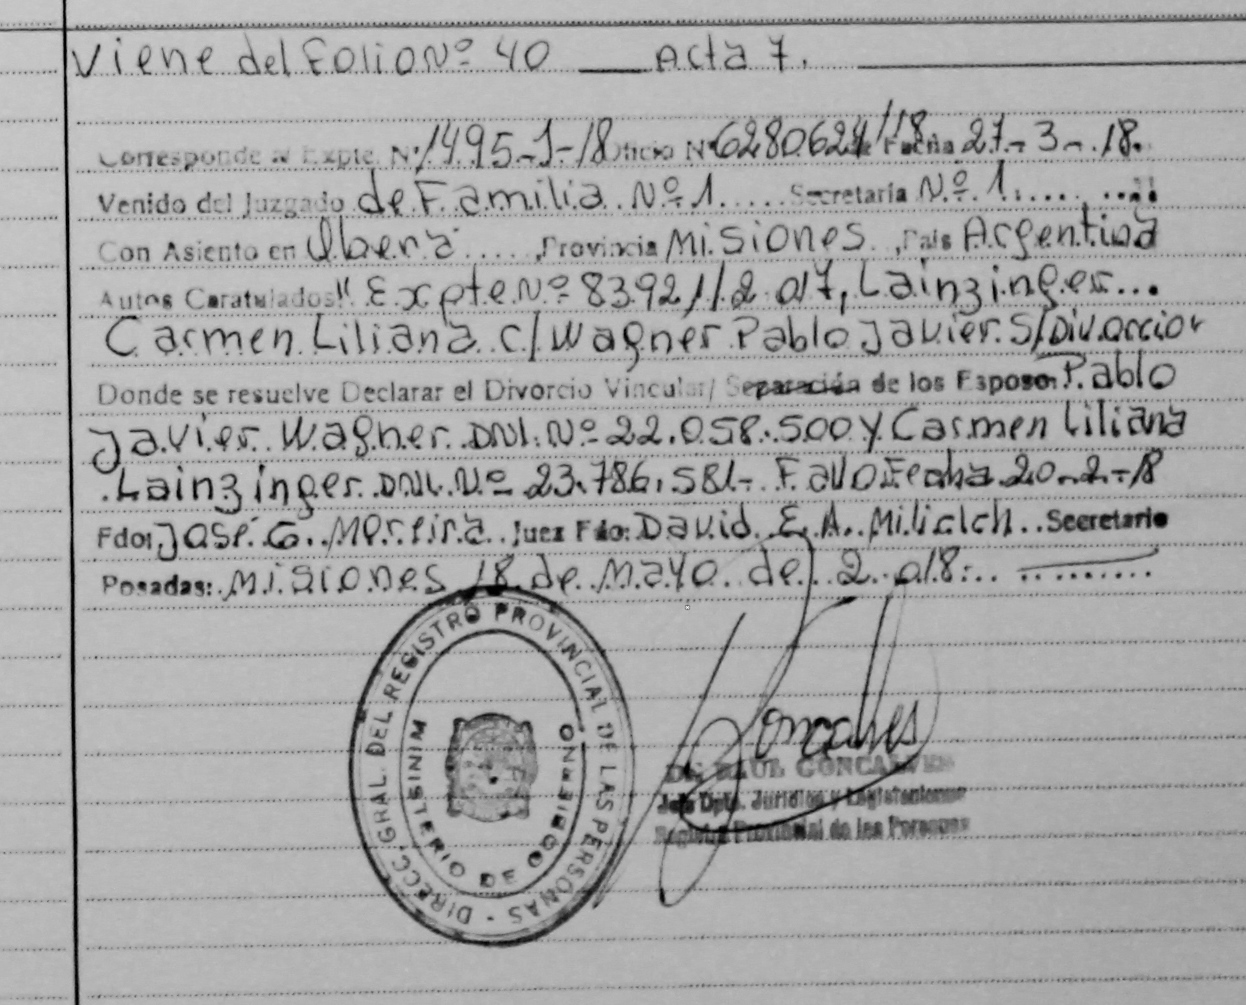 Viene del Folio Nº 40 ___ Acta 7.
Corresponde al Expte. Nº 1495-1-18 Oficio Nº 6280624/18 de Fecha 27-3-18.
Venido del Juzgado de Familia Nº 1 Secretaría Nº 1.
Con Asiento en Obera, Provincia Misiones, País Argentina
Autos Caratulados "Expte Nº 83921/2017, Lainzinger
Carmen Liliana c/ Wagner Pablo Javier S/Divorcio"
Donde se resuelve Declarar el Divorcio Vincular/ Separación de los Esposo: Pablo
Javier Wagner DNI. Nº 22.058.500 y Carmen Liliana
Lainzinger DNI. Nº 23.786.581- Fallo Fecha 20-2-18
Fdo: José G. Moreira Juez Fdo: David E. A. Milicich Secretario
Posadas: Misiones 18 de Mayo de 2018.
DIRECC. GRAL. DEL REGISTRO PROVINCIAL DE LAS PERSONAS -
MINISTERIO DE GOBIERNO
Goncalves
Dr. RAUL GONCALVES
Jefe Dpto. Jurídico y
Registro Provincial de las Personas